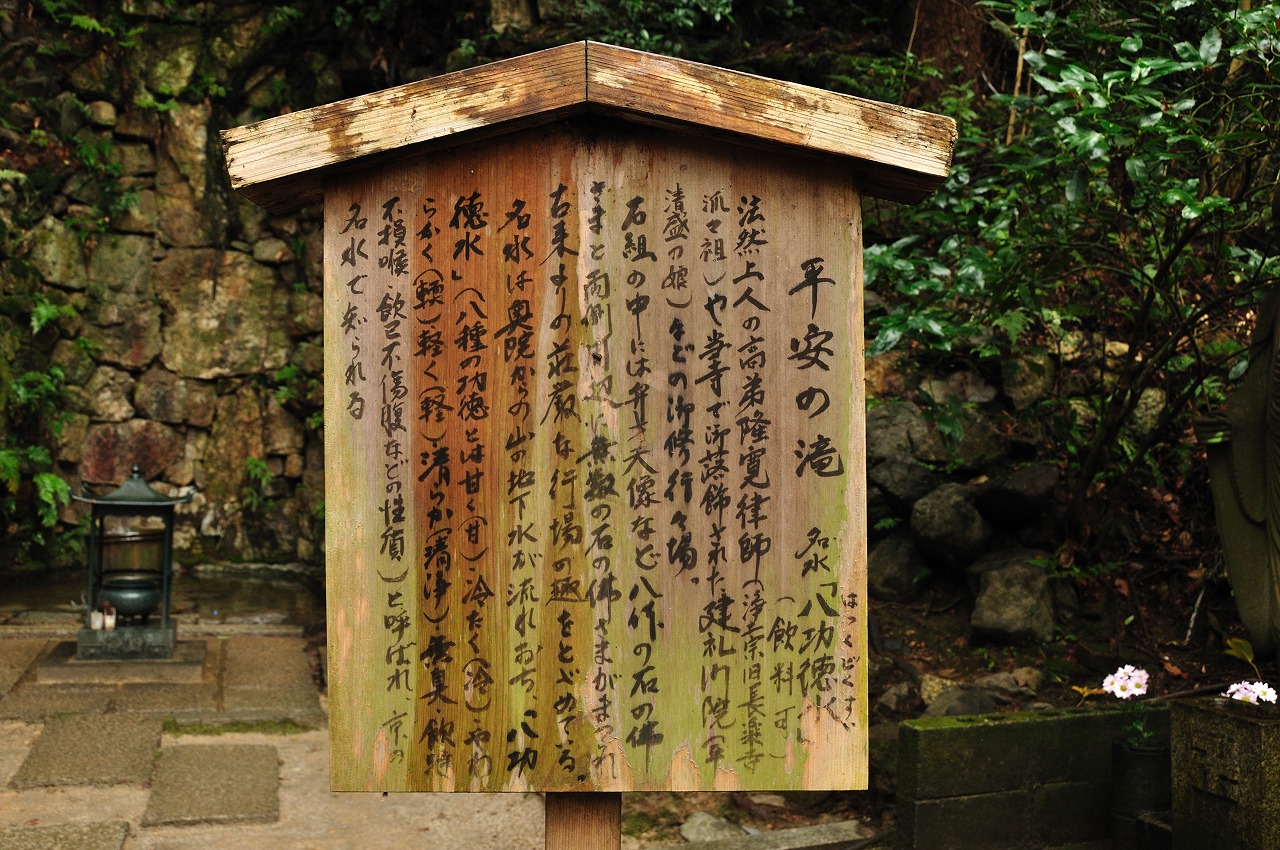 平安の滝 名水「八功徳水」
はっくどくすい
(飲料可)
法然上人の高弟隆寛律師(浄土宗旧長楽寺
派々祖)や当寺で御落飾された建礼門院(平
清盛の娘)などの御修行々場。
石組の中には弁才天像など八体の石の佛
さまと両側周辺に無数の石の佛さまがまつられ
古来よりの荘厳な行場の趣をとどめている。
名水は奥院からの山の地下水が流れおち、「八功
徳水」(八種の功徳とは甘く(甘)冷たく(冷)やわ
らかく(輭)軽く(軽)清らか(清浄)無臭、飲時
不損喉、飲已不傷腹などの性質)と呼ばれ 京の
名水で知られる